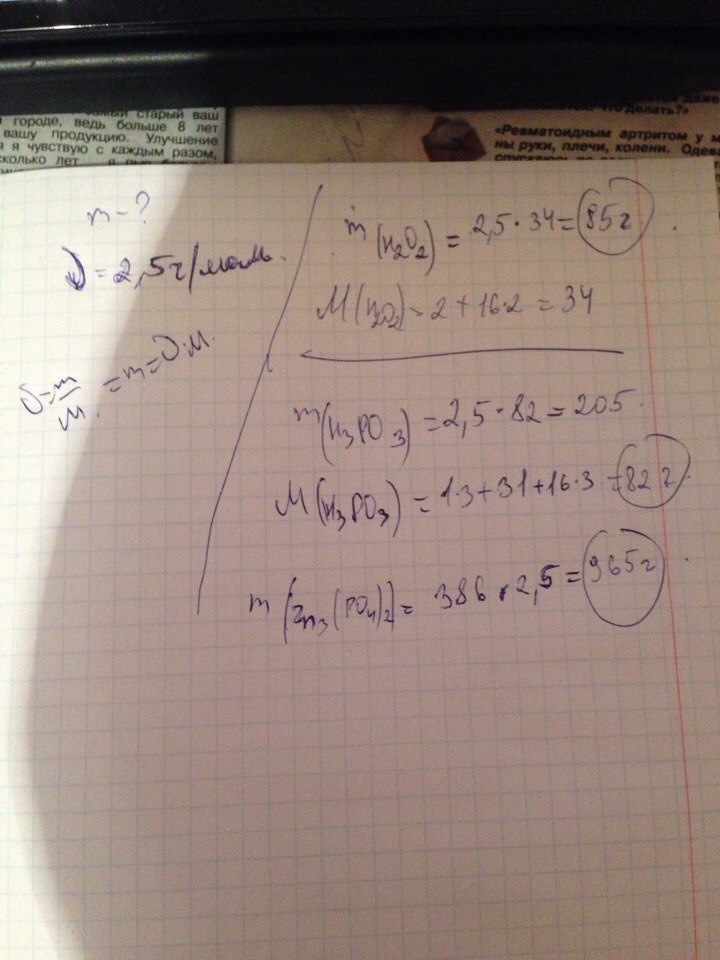 самый старый ваш
городе, ведь больше 8 лет
вашу продукцию. Улучшение
я чувствую с каждым разом,
сколько лет
даже
делать?»
«Ревматоидным артритом у м
ны руки, плечи, колени. Одева
m - ?
ν = 2,5 г/моль.
ν = m/M. = m = ν·M.
m(H₂O₂) = 2,5 · 34 = 85г
M(H₂O₂) = 2 + 16·2 = 34
m(H₃PO₃) = 2,5 · 82 = 205.
M(H₃PO₃) = 1·3 + 31 + 16·3 = 82 г.
m (Zn₃(PO₄)₂) = 386 · 2,5 = 965г